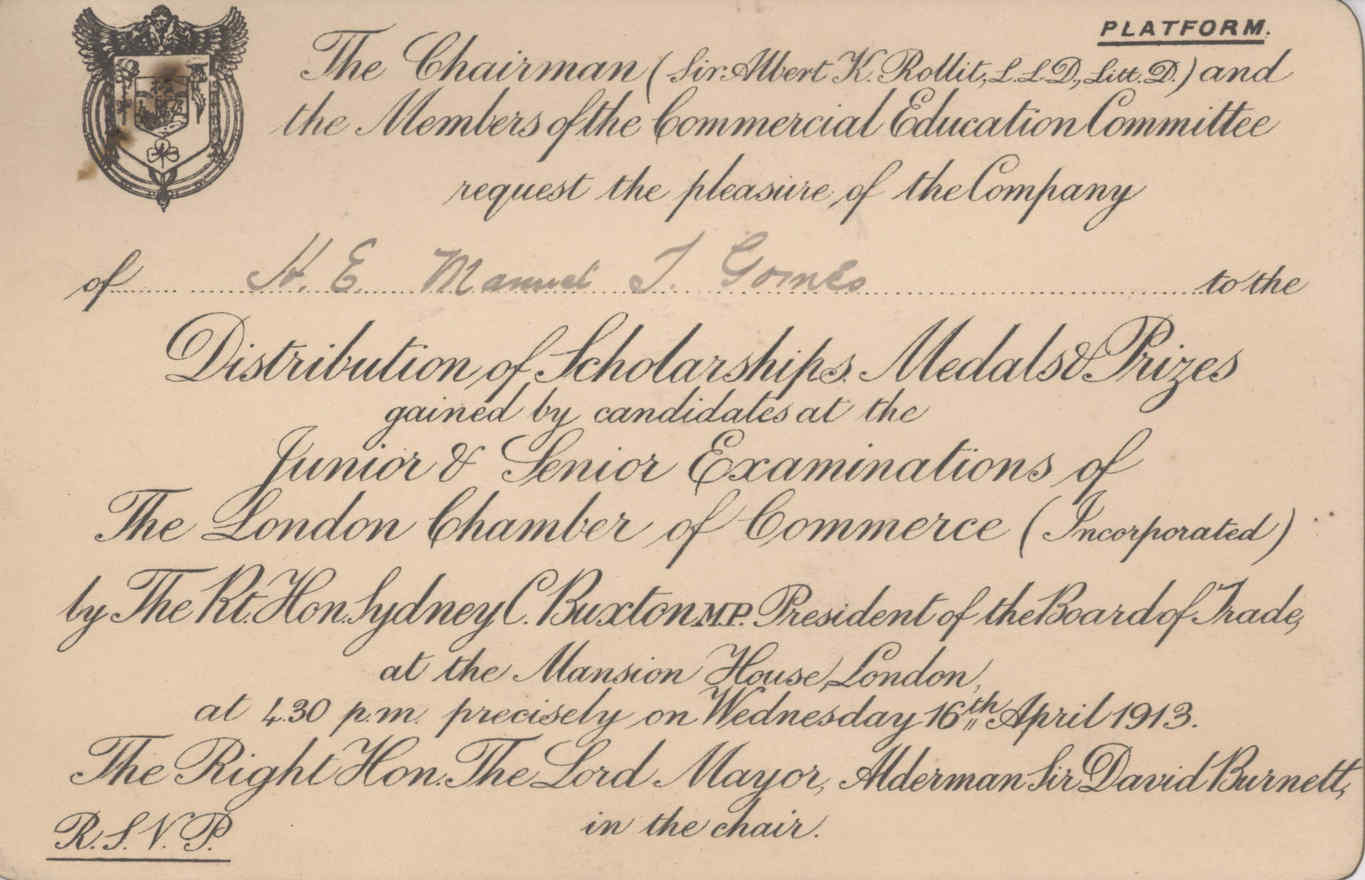 PLATFORM.
The Chairman (Sir Albert K. Rollit, L.L.D., Litt. D.) and
the Members of the Commercial Education Committee
request the pleasure of the Company
of H. E. Manuel T. Gomes to the
Distribution of Scholarships, Medals & Prizes
gained by candidates at the
Junior & Senior Examinations of
The London Chamber of Commerce (Incorporated)
by The Rt. Hon. Sydney C. Buxton M.P. President of the Board of Trade,
at the Mansion House, London,
at 4.30 p.m. precisely on Wednesday 16th April 1913.
The Right Hon. The Lord Mayor, Alderman Sir David Burnett,
in the chair.
R.S.V.P.